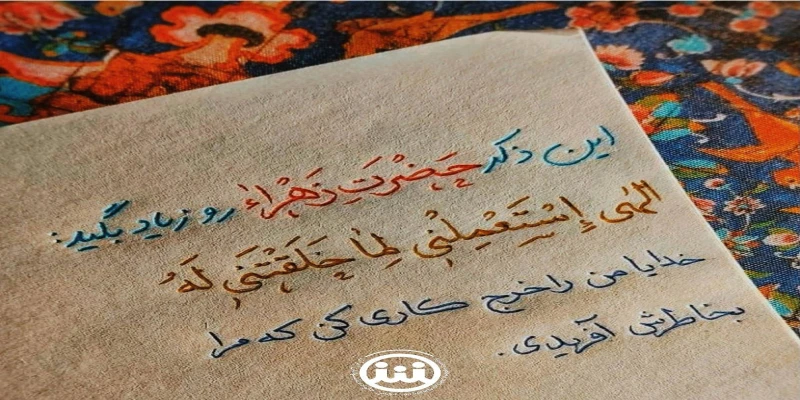 این ذکر حَضْرَتِ زَهْراءٰ رو زیاد بگید:
الهٰی إِسْتَعْمِلْنِی لِمٰا خَلَقْتَنی لَهُ
خدایا من را خرج کاری کن که مرا
بخاطرش آفریدی.